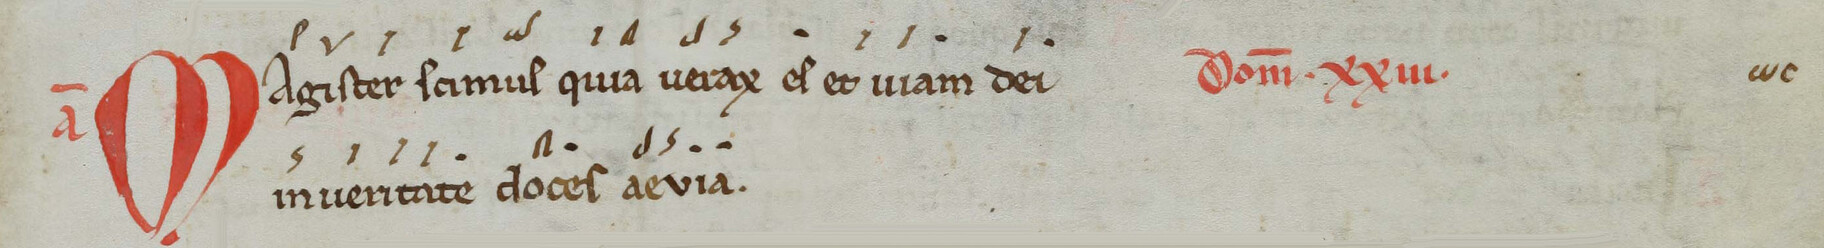 ā MAgister scimus quia uerax es et uiam dei Dom̄. xxiii. ωc
in ueritate doces aevia.